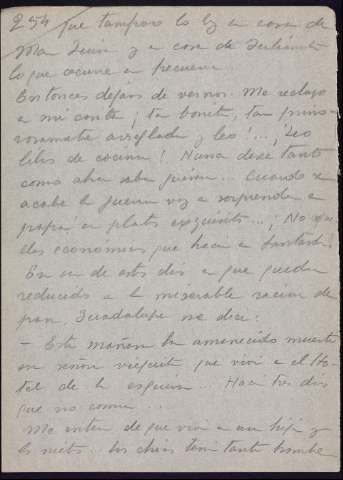 254 que tampoco lo hay en casa de
Mari Juan y en casa de Julián
lo que ocurre con frecuencia.
Entonces dejan de vernos. Me recluyo
en mi cuarto, tan bonito, tan primo-
rosamente arreglado y leo!... ¡Leo
libros de cocina! Nunca deseé tanto
como ahora saber guisar... Cuando se
acabe la guerra voy a sorprender a
papá con platos exquisitos... ¡No
económicos, que hacen a Santander!
En uno de estos días en que quedan
reducidos a la miserable ración de
pan, Guadalupe me dice:
- Esta mañana ha amanecido muerto
un señor viejecito que vivía en el Ho-
tel de la esquina... Hacía tres días
que no comía...
Me entero de que vivía con su hija y
los nietos... los chicos tenían tanta hambre